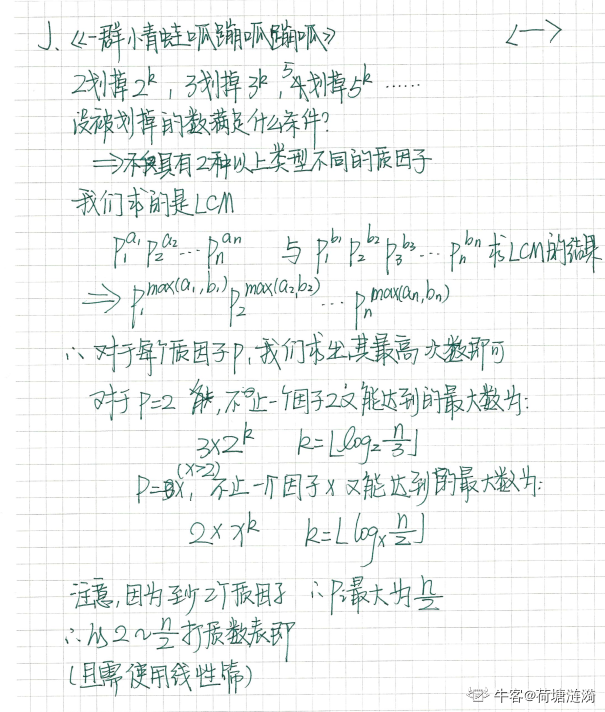 J、《一群小青蛙呱蹦呱蹦呱》 <一>
2划掉2^k，3划掉3^k，5划掉5^k ……
没被划掉的数满足什么条件？
⇒具有2种以上类型不同的质因子
我们求的是LCM
p₁^a₁ p₂^a₂ … pₙ^aₙ 与 p₁^b₁ p₂^b₂ p₃^b₃ … pₙ^bₙ 求LCM的结果
⇒ p₁^max(a₁,b₁) p₂^max(a₂,b₂) … pₙ^max(aₙ,bₙ)
∴ 对于每个质因子p，我们求出其最高次数即可
对于p=2，不止一个因子2又能达到的最大数为：
3×2^k k=⌊log₂ n/3⌋
p=x(x>2)，不止一个因子x又能达到的最大数为：
2×x^k k=⌊logₓ n/2⌋
注意，因为至少2个质因子 ∴pᵢ最大为n/2
∴从2~n/2打质数表即
(且需使用线性筛)
牛客@荷塘涟漪